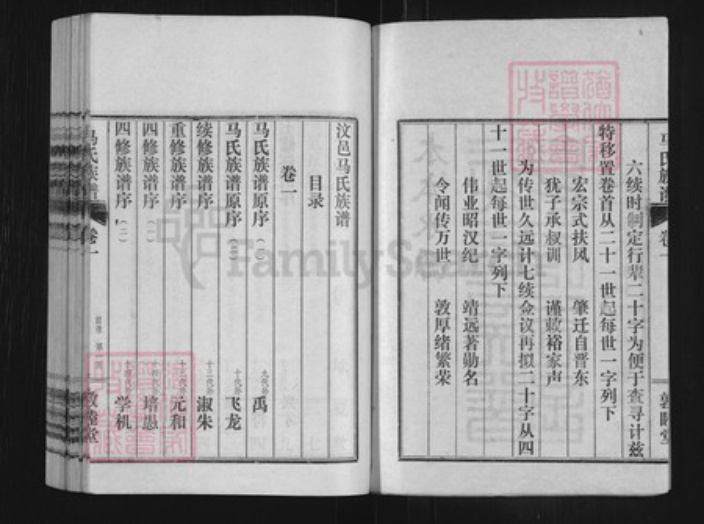 六续时制定行辈二十字为便于查寻计兹
特移置卷首从二十一世起每世一字列下
宏宗式扶风 肇迁自晋东
犹子承叔训 谨敕裕家声
为传世久远计七续佥议再拟二十字从四
十一世起每世一字列下
伟业昭汉纪 靖远著勋名
令闻传万世 敦厚绪繁荣
马氏族谱 卷一
敦睦堂
汶邑马氏族谱
目录
卷一
马氏族谱原序(一) 九代孙 禹
马氏族谱原序(二) 十代孙 飞龙
续修族谱序 十三代孙 淑朱
重修族谱序 元和
四修族谱序(一) 培愚
四修族谱序(二) 学机
马氏族谱 卷一
敦睦堂
FamilySearch